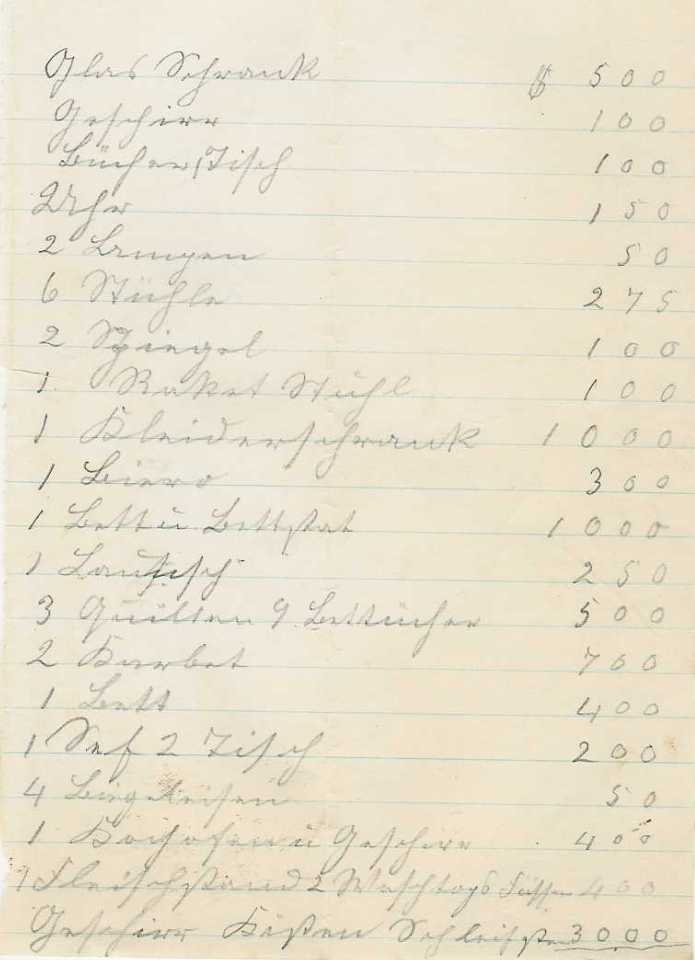 Glas Schrank $ 500
Geschirr 100
Bücher, Tisch 100
Uhr 150
2 Lampen 50
6 Stühle 275
2 Spiegel 100
1 Raket Stuhl 100
1 Kleiderschrank 1000
1 Biero 300
1 Bett u Bettstat 1000
1 250
3 Quilten 9 Bettücher 500
2 Karbet 700
1 Bett 400
1 Sef 2 Tisch 200
4 Biegeleisen 50
1 Kochofen u Geschirr 400
1 Fleischstand 2 Waschtops Fässer 400
Geschirr Kisten 3000